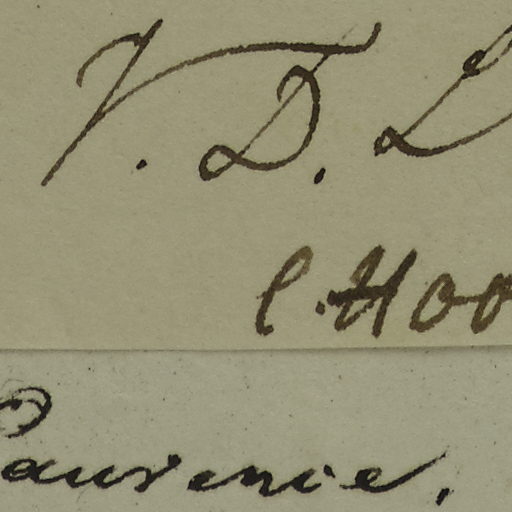 V. D. L
C. Hoo
Lawrence.